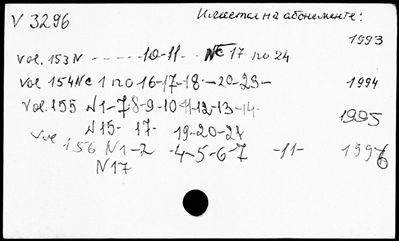 V 3296 Имеется на абонементе:
1993
vol. 153 N - - - - - 10-11 - - N 17 по 24
vol 154 N 1 по 16-17-18- -20-23- 1994
vol. 155 N1-7-8-9-10-11-12-13-14- 1995
N15- 17- 19-20-24
vol 156 N1-2 -4-5-6-7 -11- 1996
N17